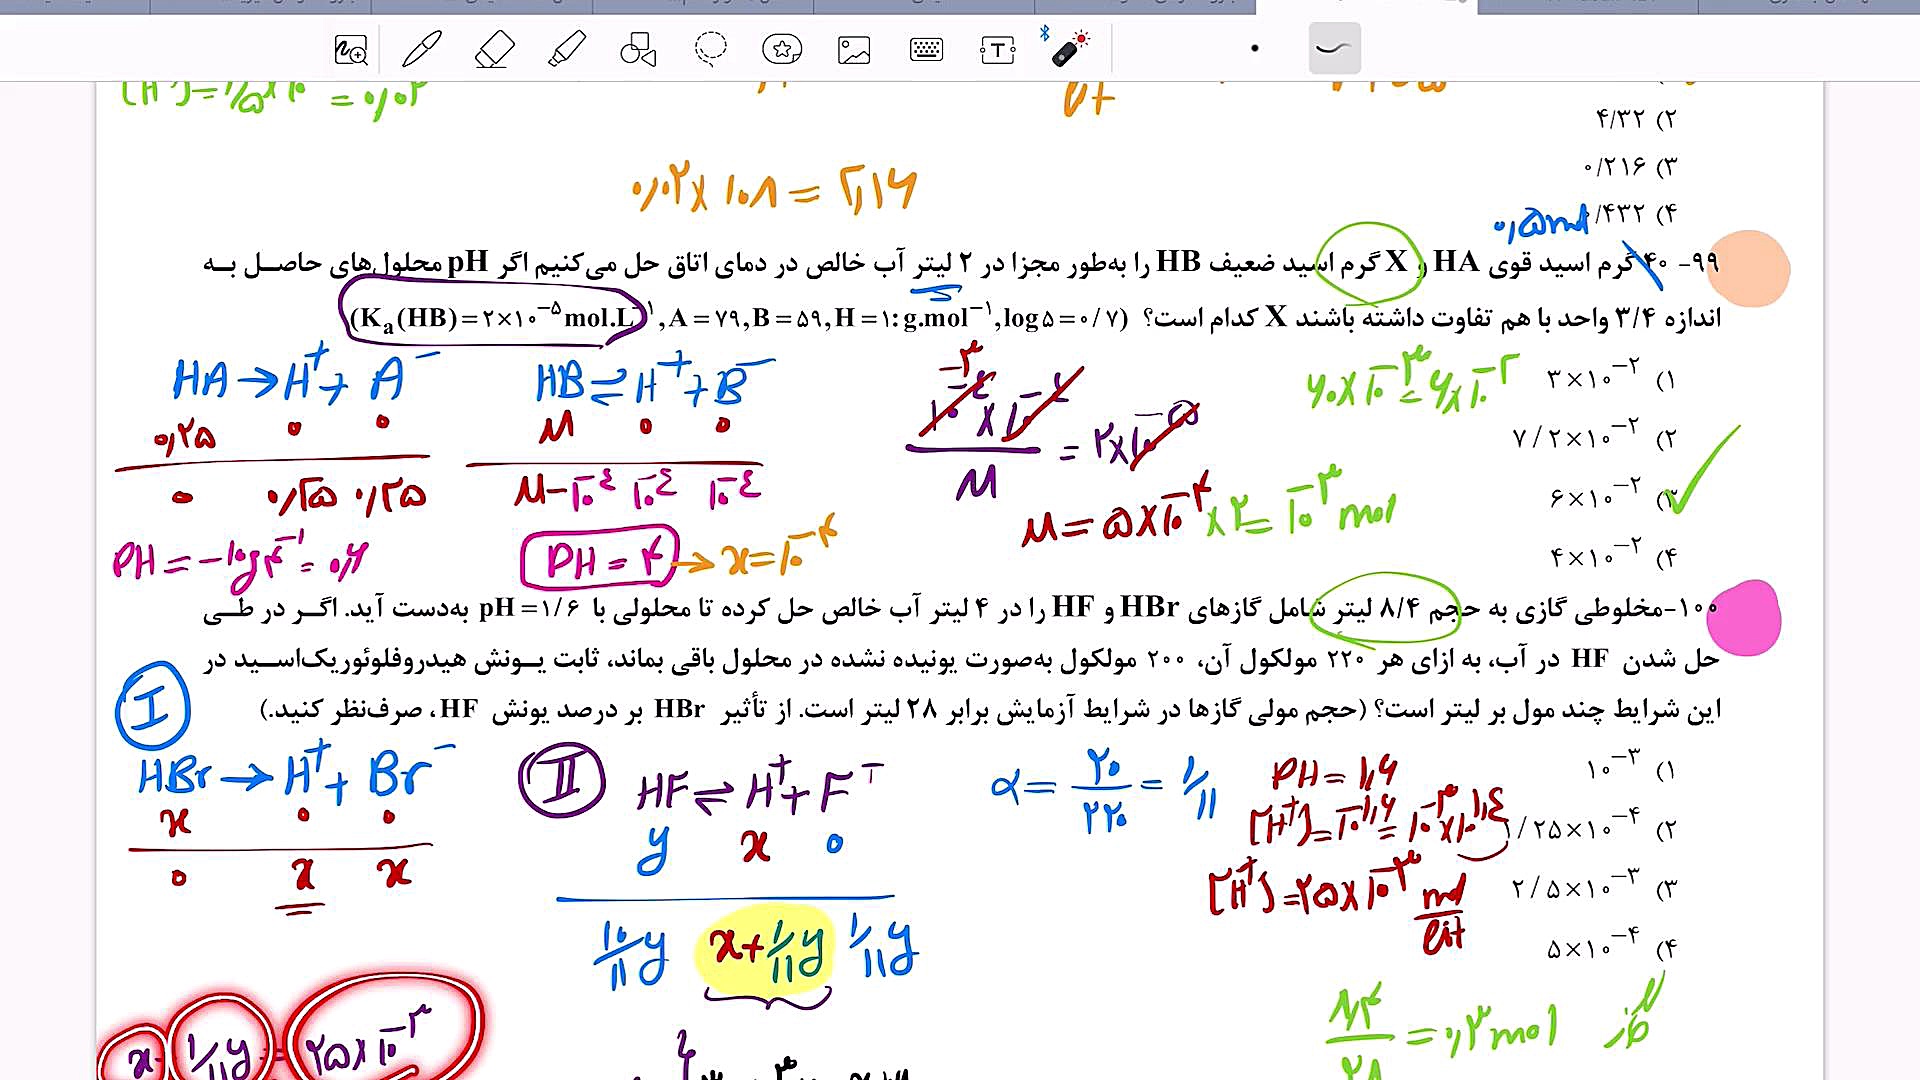 = ۰/۰۲
۲) ۴/۳۲
۳) ۰/۲۱۶
۴) ۰/۴۳۲
۰/۰۲ × ۱۰۸ = ۲/۱۶
۰/۵ mol
۹۹- ۴۰ گرم اسید قوی HA و X گرم اسید ضعیف HB را به‌طور مجزا در ۲ لیتر آب خالص در دمای اتاق حل می‌کنیم اگر pH محلول‌های حاصل به
اندازه ۳/۴ واحد با هم تفاوت داشته باشند X کدام است؟ (Ka(HB)=۲×۱۰^−۵ mol.L^−۱, A=۷۹, B=۵۹, H=۱: g.mol^−۱, log۵=۰/۷)
۱) ۳×۱۰^−۲
۲) ۷/۲×۱۰^−۲
۳) ۶×۱۰^−۲
۴) ۴×۱۰^−۲
HA → H^+ + A^−
۰/۲۵ ۰ ۰
۰ ۰/۲۵ ۰/۲۵
PH = −log ۴^−۱ = ۰/۶
HB ⇌ H^+ + B^−
M ۰ ۰
M−۱۰^−۴ ۱۰^−۴ ۱۰^−۴
PH = ۴ → x = ۱۰^−۴
۱۰^−۴ × ۱۰^−۴ / M = ۲×۱۰^−۵
M = ۵×۱۰^−۴ × ۲ = ۱۰^−۳ mol
۶۰×۱۰^−۳ = ۶×۱۰^−۲
۱۰۰-مخلوطی گازی به حجم ۸/۴ لیتر شامل گازهای HBr و HF را در ۴ لیتر آب خالص حل کرده تا محلولی با pH=۱/۶ به‌دست آید. اگر در طی
حل شدن HF در آب، به ازای هر ۲۲۰ مولکول آن، ۲۰۰ مولکول به‌صورت یونیده نشده در محلول باقی بماند، ثابت یونش هیدروفلوئوریک‌اسید در
این شرایط چند مول بر لیتر است؟ (حجم مولی گازها در شرایط آزمایش برابر ۲۸ لیتر است. از تأثیر HBr بر درصد یونش HF، صرف‌نظر کنید.)
۱) ۱۰^−۳
۲) ۱/۲۵×۱۰^−۴
۳) ۲/۵×۱۰^−۳
۴) ۵×۱۰^−۴
I
HBr → H^+ + Br^−
x ۰ ۰
۰ x x
II
HF ⇌ H^+ + F^−
y x ۰
۱۰/۱۱ y x+۱/۱۱ y ۱/۱۱ y
α = ۲۰/۲۲۰ = ۱/۱۱
PH = ۱/۶
[H^+] = ۱۰^−۱/۶ = ۱۰^−۳ × ۱۰^۱/۴
[H^+] = ۲۵×۱۰^−۳ mol/lit
۸/۴ / ۲۸ = ۰/۳ mol گاز
x ۱/۱۱ y = ۲۵×۱۰^−۳